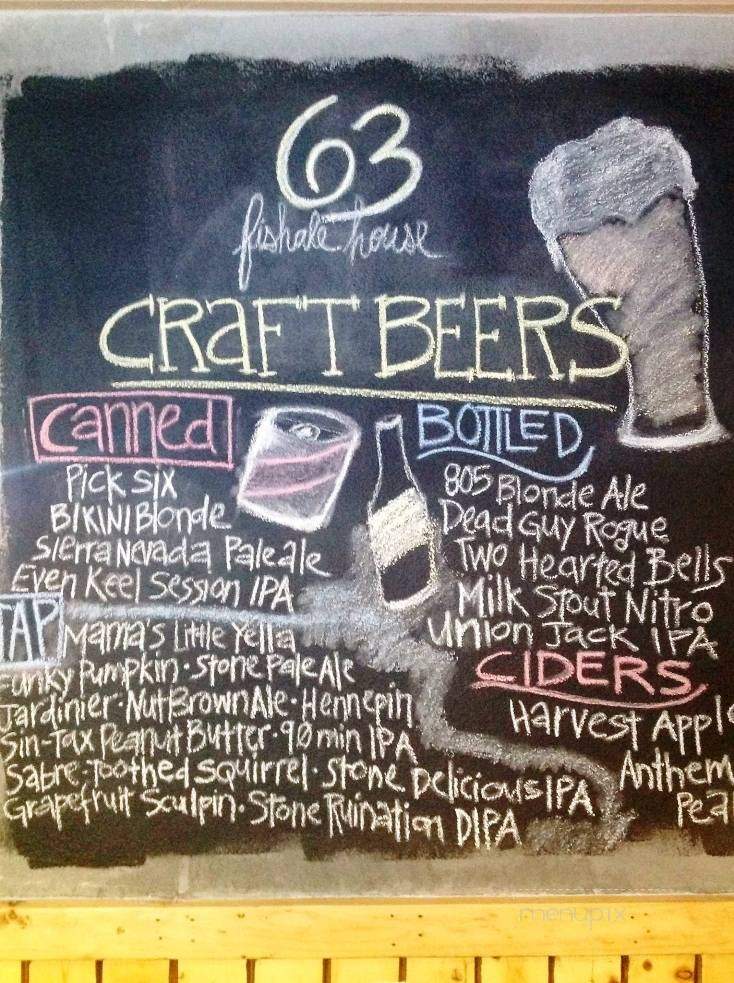 63
fishale house
CRAFT BEERS
Canned
Pick Six
BIKINI Blonde
Sierra Nevada Pale ale
Even Keel Session IPA
BOTTLED
805 Blonde Ale
Dead Guy Rogue
Two Hearted Bells
Milk Stout Nitro
Union Jack IPA
TAP
Mama's Little Yella
Funky Pumpkin · Stone Pale Ale
Jardinier · Nut Brown Ale · Hennepin
Sin-Tax Peanut Butter · 90 min IPA
Sabre-Toothed Squirrel · Stone Delicious IPA
Grapefruit Sculpin · Stone Ruination DIPA
CIDERS
Harvest Appl
Anthem
Pea
menupix